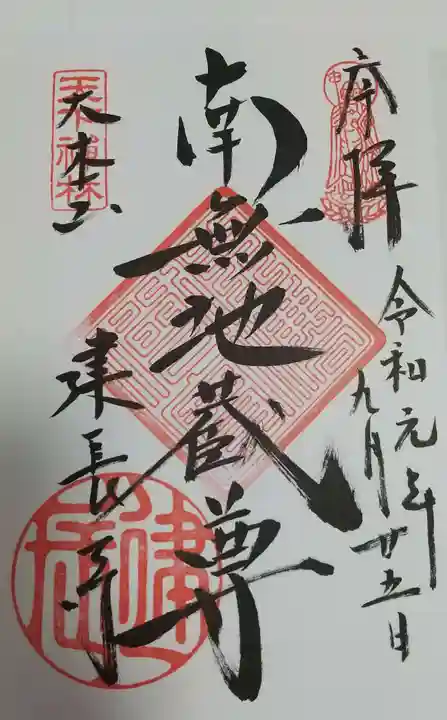 奉拝
令和元年
九月廿五日
南無地蔵尊
天下禅林
建長寺